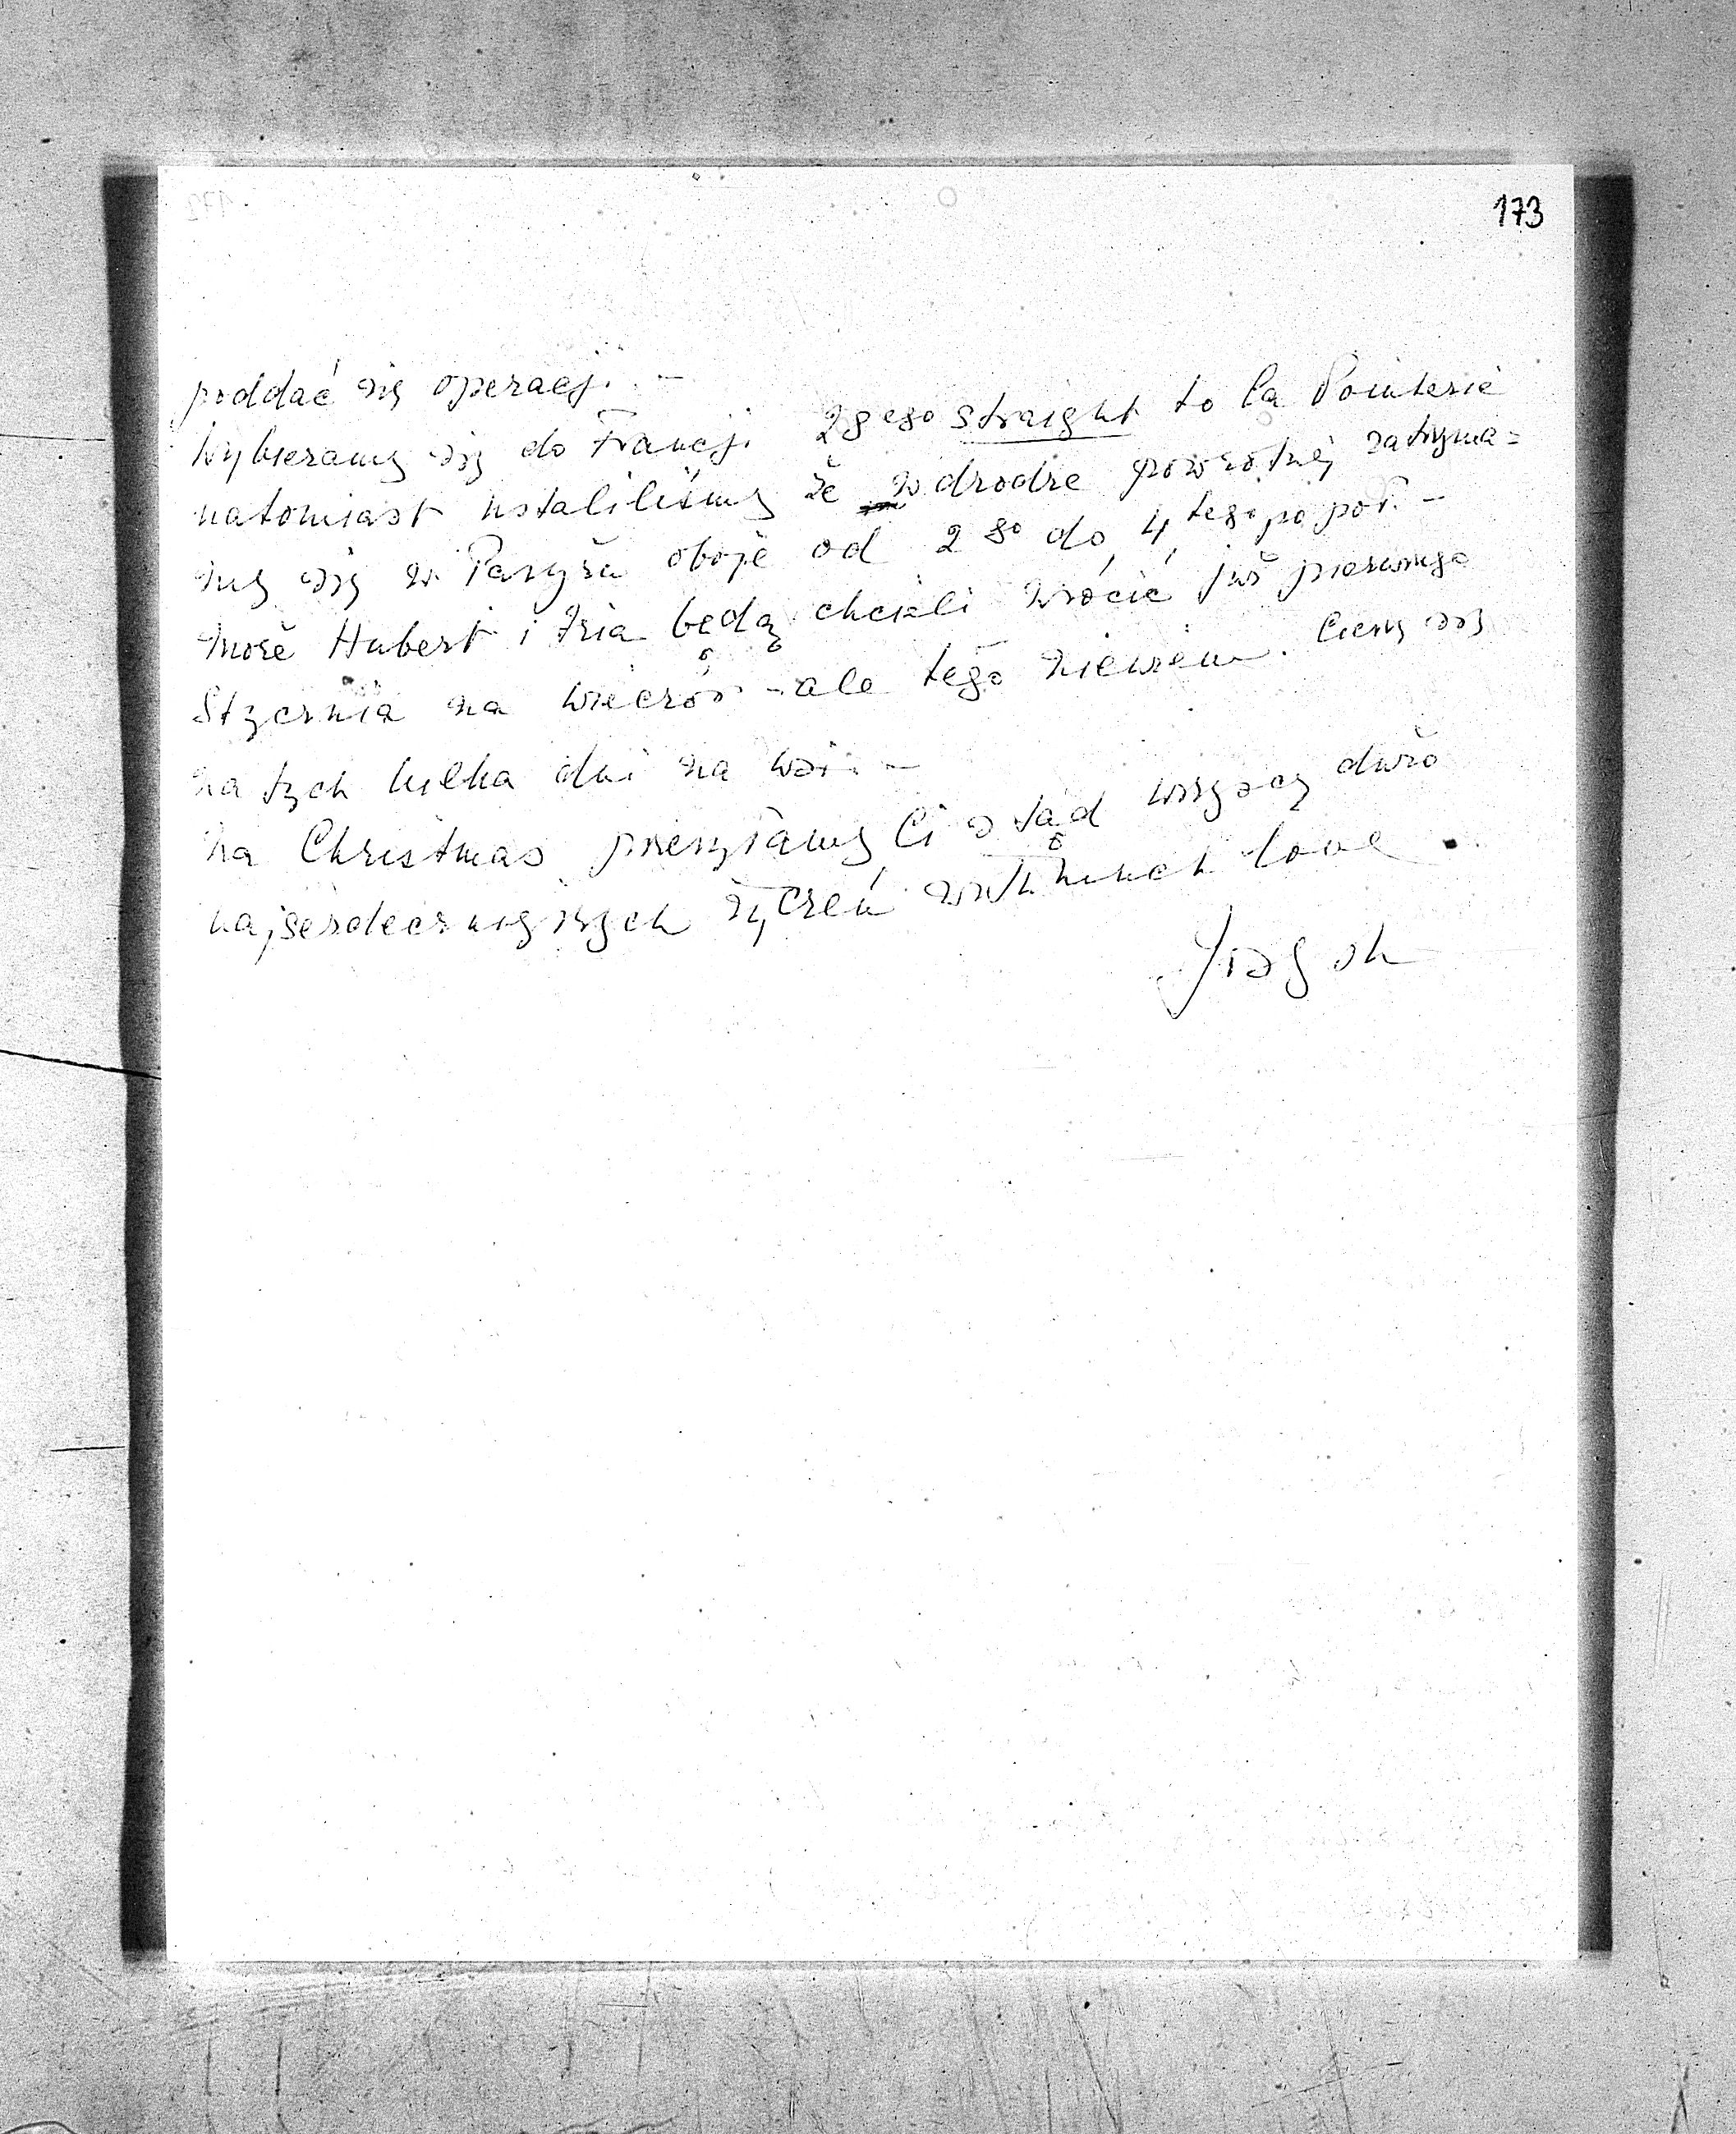 173
poddać się operacji. —
Wybieramy się do Francji 28ego straight to la Pointerie
natomiast ustaliliśmy że w drodze powrotnej zatrzyma=
my się w Paryżu oboje od 2go do 4tego po poł. —
może Hubert i Izia będą chcieli wrócić już pierwszego
Stycznia na wieczór – ale tego niewiem. Cieszę się
na tych kilka dni na wsi. —
na Christmas przesyłamy Ci stąd wszyscy dużo
najserdeczniejszych życzeń with much love.